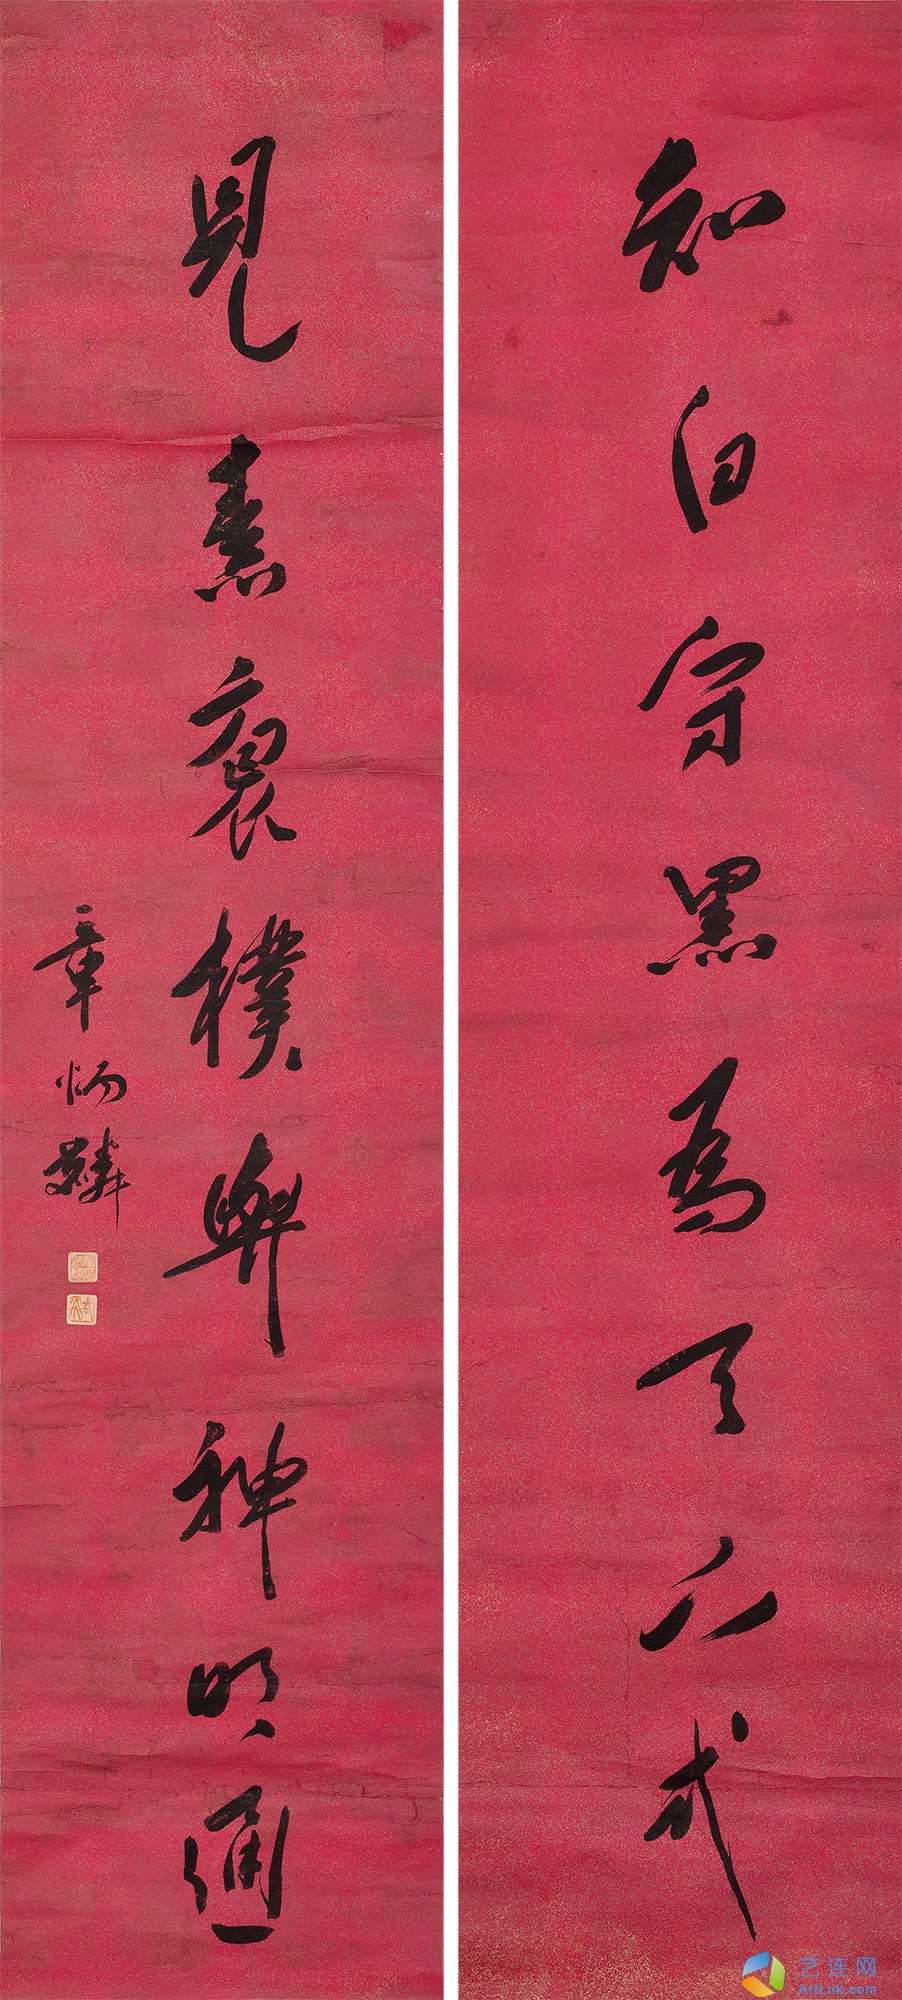 知白守黑為天下式
見素裒樸與神明通
章炳麟
艺连网
ArtLnk.com